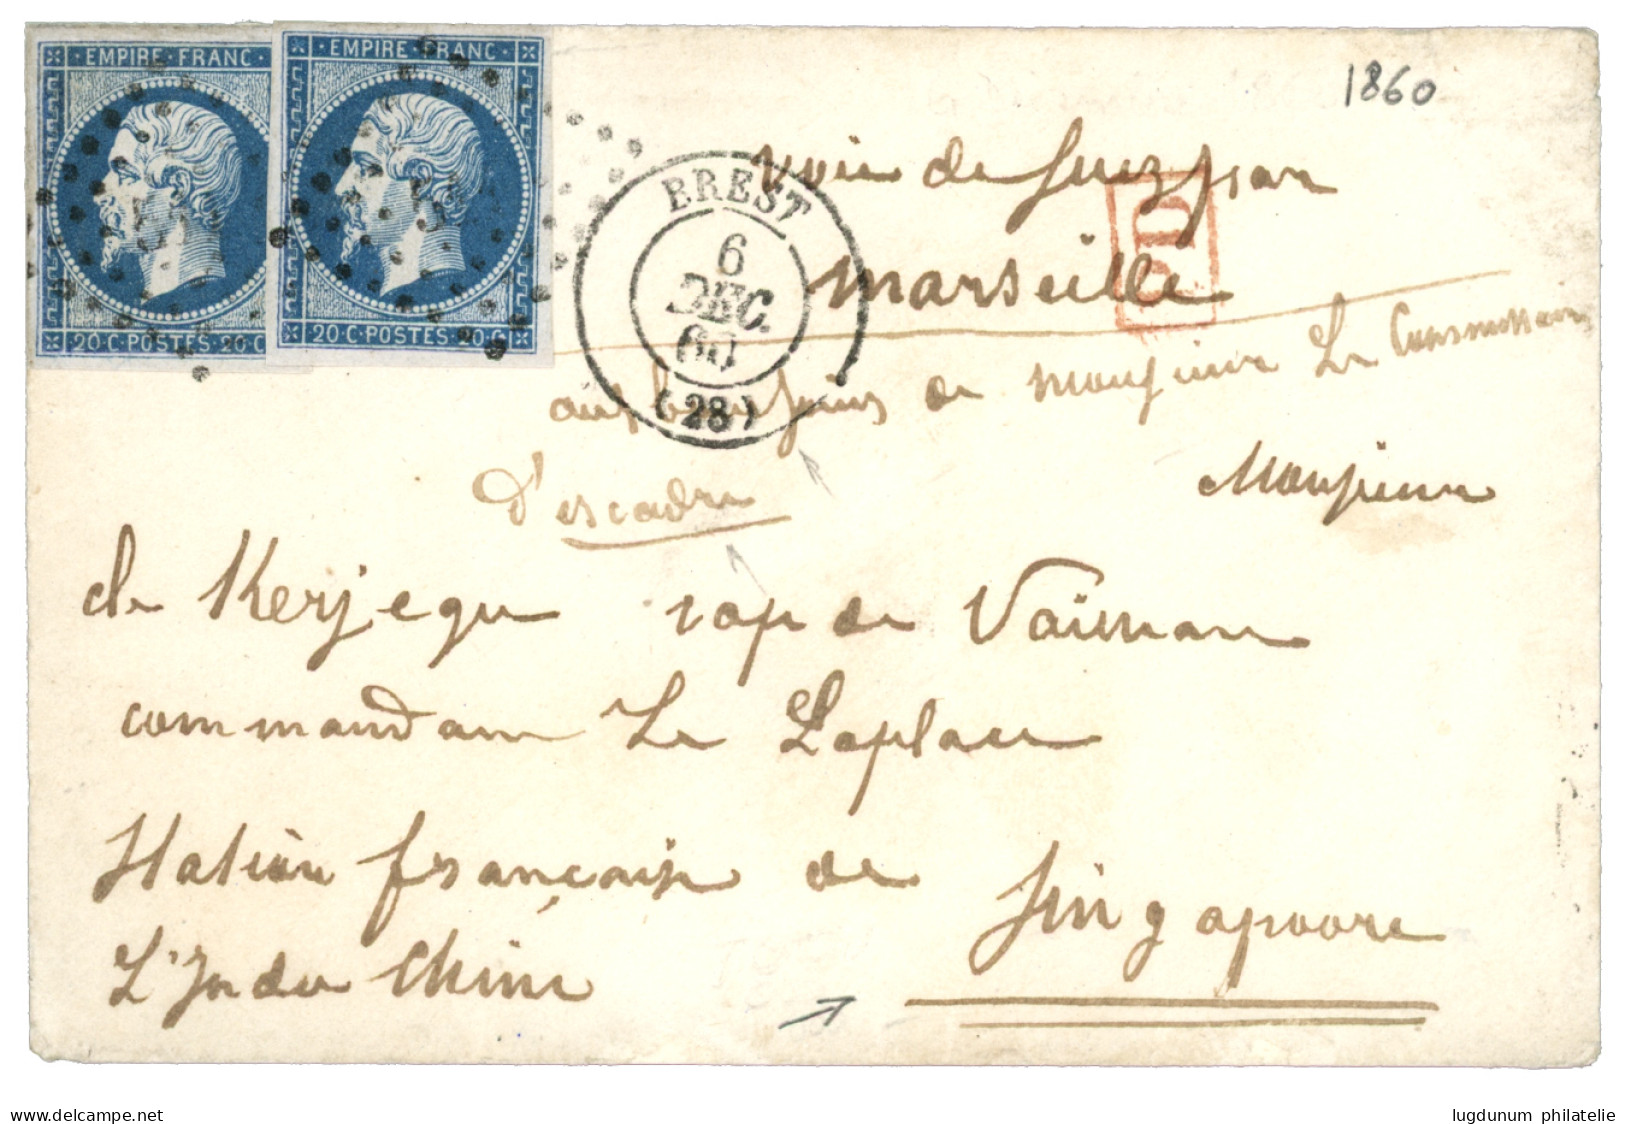 EMPIRE·FRANC·
EMPIRE·FRANC·
20·C·POSTES·20·C
20·C·POSTES·20·C
1860
BREST
6
DEC.
60
(28)
PD
voie de Suez par
Marseille
aux bons soins de Monsieur Le Commissaire
d'escadre
Monsieur
de Kerjegu de
commandant Le Laplace
Station française de
L'Indo Chine
Singapoore
delcampe.net
lugdunum philatelie